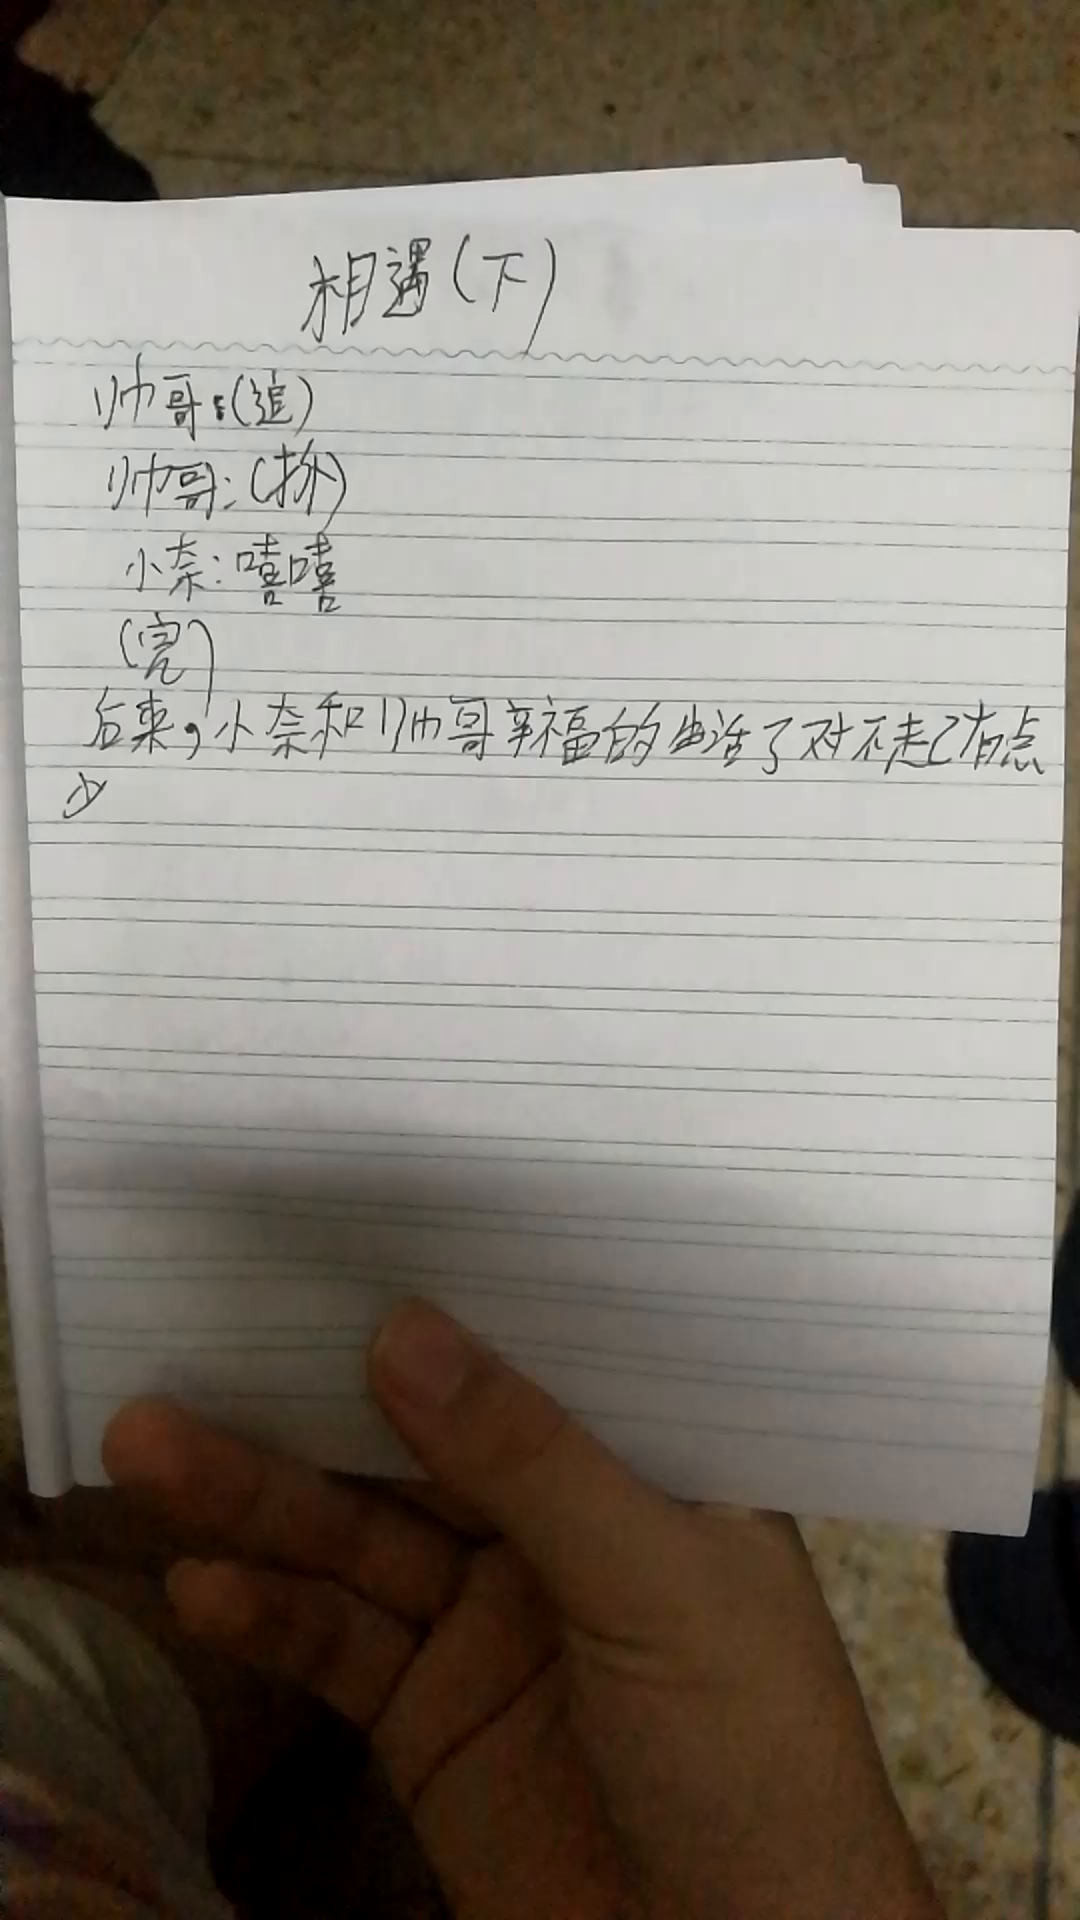 相遇(下)
帅哥:(追)
帅哥:(扑)
小奈:嘻嘻
(完)
后来,小奈和帅哥幸福的生活了对不起有点
少